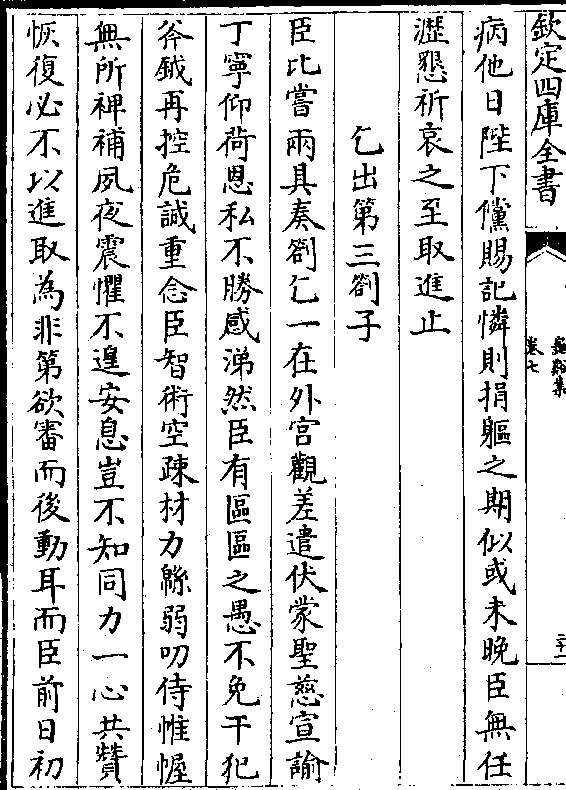 欽定四庫全書
龜谿集
卷七
病他日陛下儻賜記憐則捐軀之期似或未晚臣無任
瀝懇祈哀之至取進止
乞出第三劄子
臣比嘗兩具奏劄乞一在外宫觀差遣伏蒙聖慈宣諭
丁寧仰荷恩私不勝感涕然臣有區區之愚不免干犯
斧鉞再控危誠重念臣智術空疎材力緜弱叨侍帷幄
無所裨補夙夜震懼不遑安息豈不知同力一心共賛
恢復必不以進取為非第欲審而後動耳而臣前日初